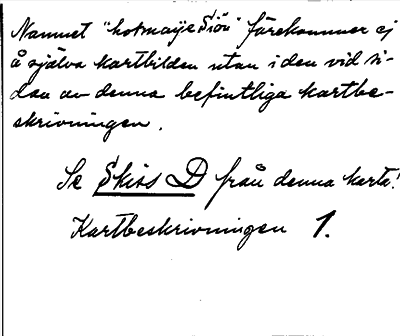 Namnet "hotmaije Siön" förekommer ej
å själva kartbilden utan i den vid si-
dan av denna befintliga kartbe-
skrivningen.
Se Skiss D från denna karta!
Kartbeskrivningen 1.